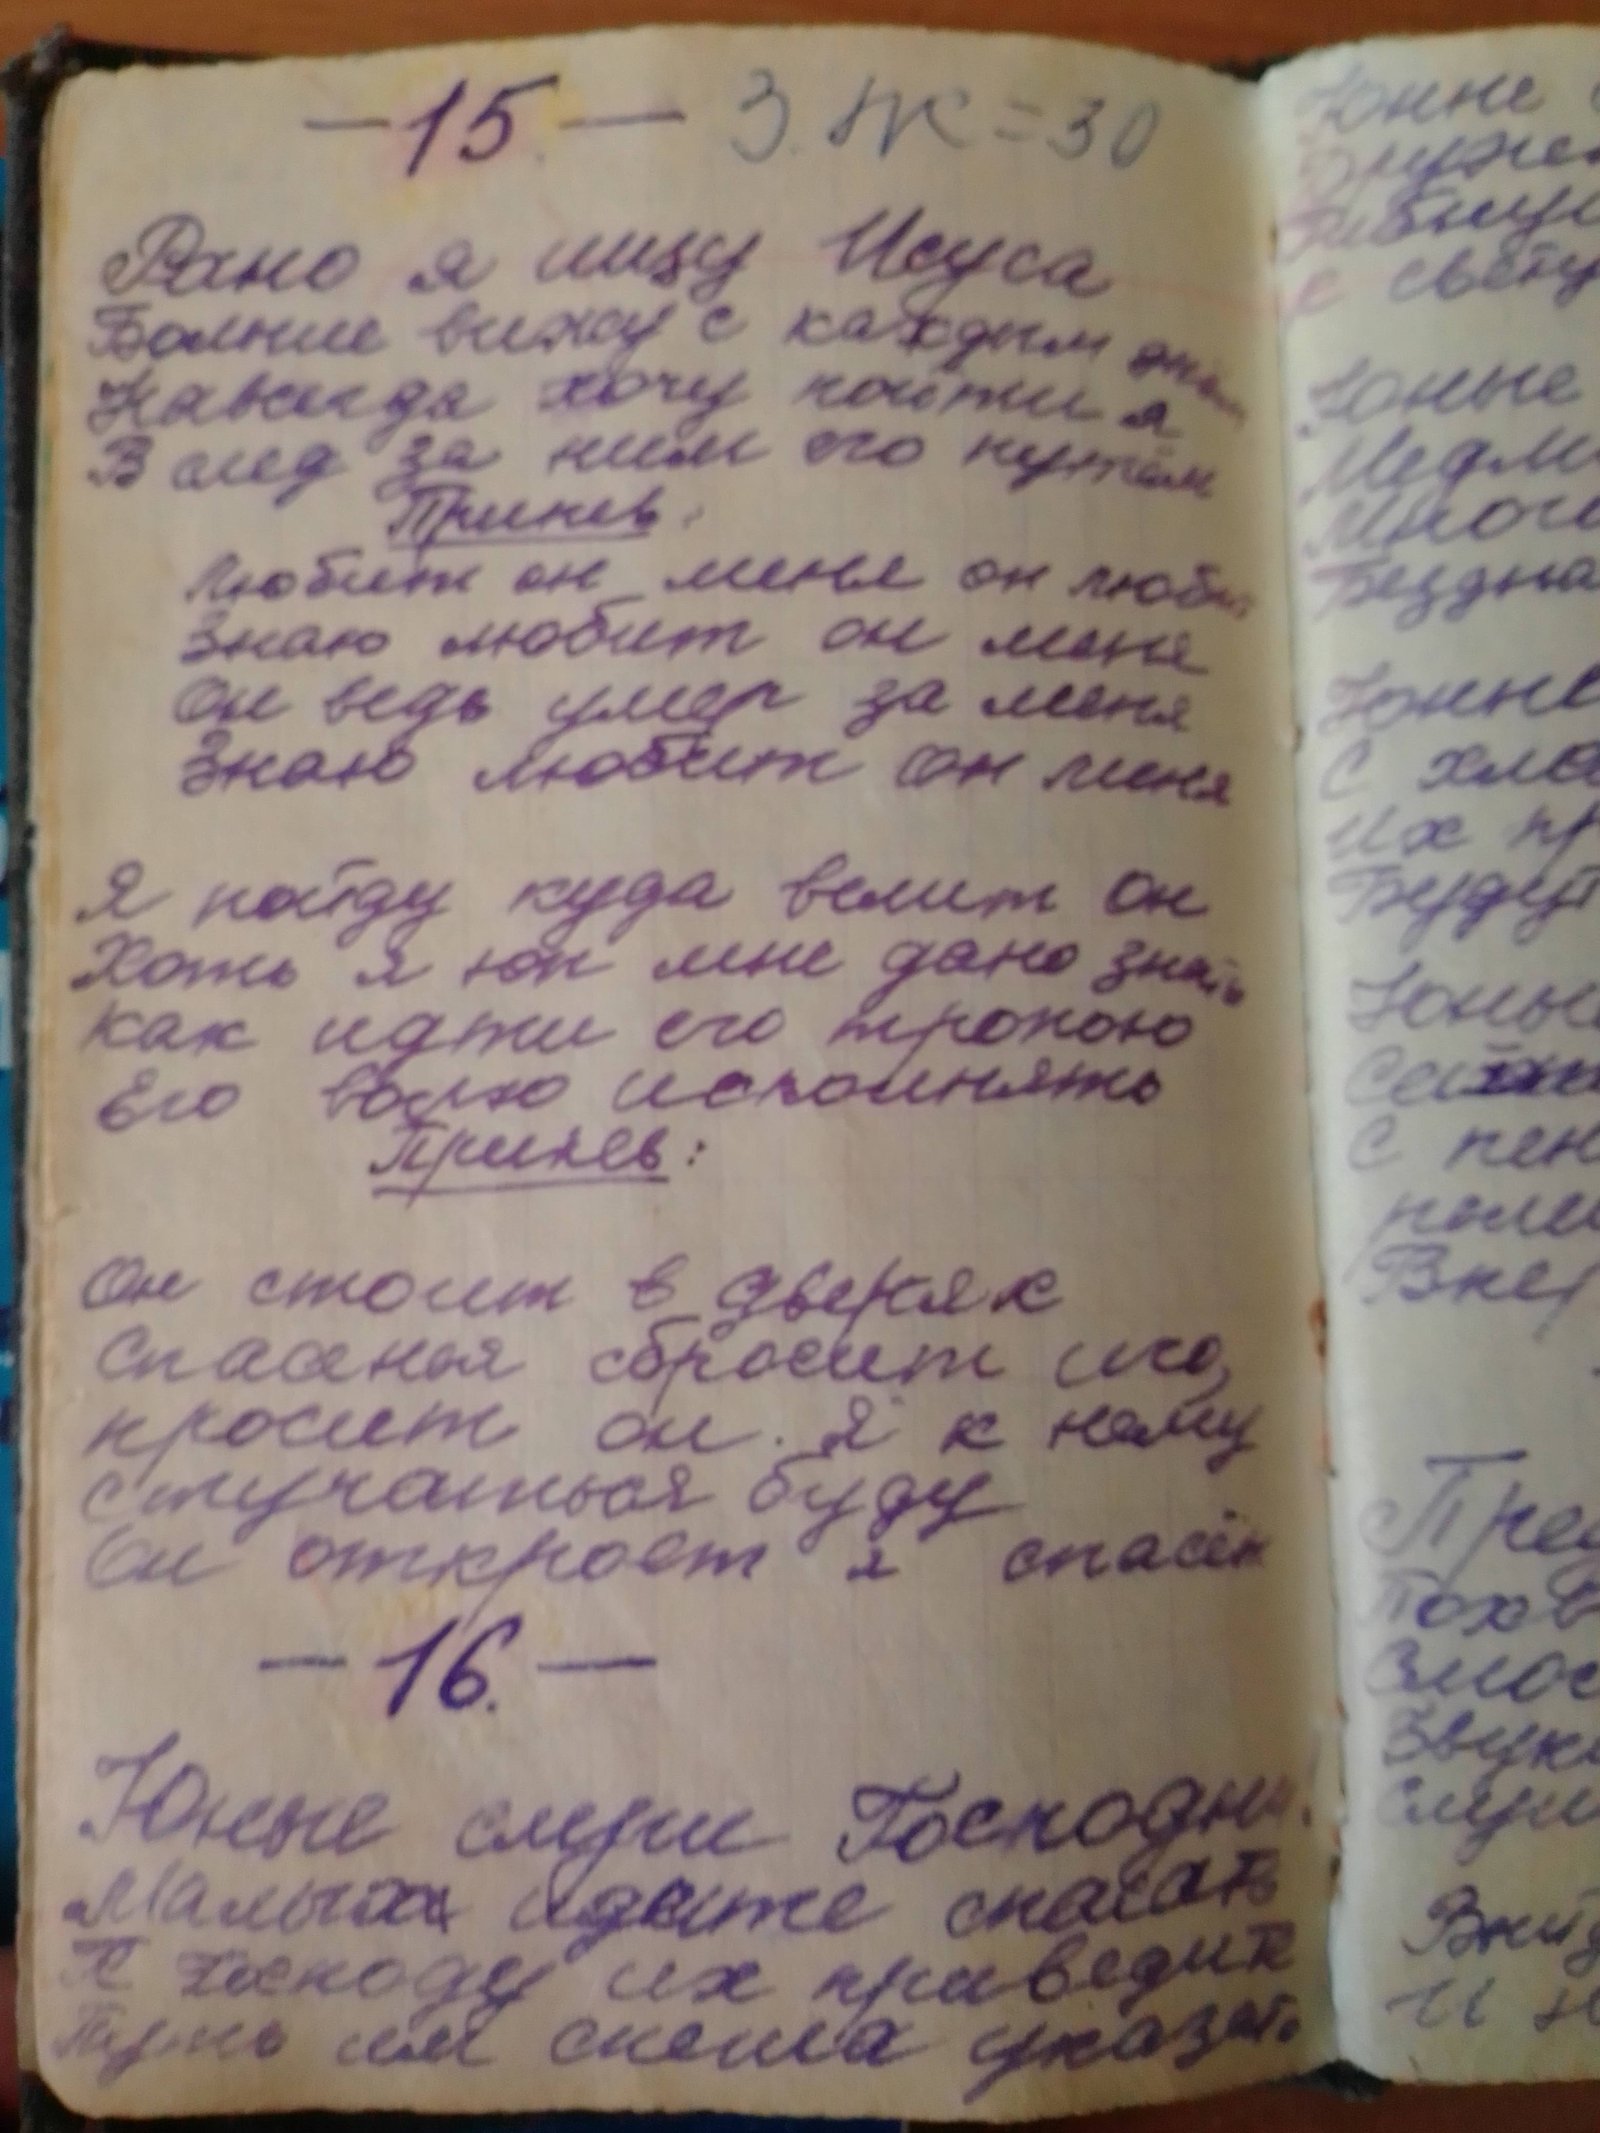 — 15. — З. Ж = 30
Рано я ищу Исуса
Больше вижу с каждым днем
Навсегда хочу пойти я
В след за ним его путём
Припев:
Любит он меня он любит
Знаю любит он меня
Он ведь умер за меня
Знаю любит он меня
Я пойду куда велит он
Хоть я юн мне дано знать
Как идти его тропою
Его волю исполнять
Припев:
Он стоит в дверях
спасенья сбросит иго,
просит он. Я к нему
стучаться буду
Он откроет я спасён
— 16. —
Юные слуги Господни
Малых идите спасать
К Господу их приводить
Путь им спеша указать
Юнне
с свету
Юные
Много
Бездна
Юнне
С
Их пр
Будут
Юные
С пен
Впер
Пред
Похв
Звуки
Слуш
Внид
И н